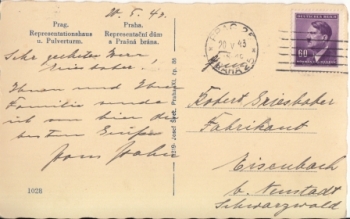 20. V. 43.
Prag.
Representationshaus
u. Pulverturm.
Praha.
Representační dům
a Prašná brána.
Sehr geehrter Herr
Griesbaber,
Ihnen und Ihrer
Familie sende
ich von hier die
besten Grüße
1028
PRAG 25
20. V. 43
PRAHA 25
60
Robert Griesbaber
Fabrikant
Eisenbach
b. Neustadt
Schwarzwald